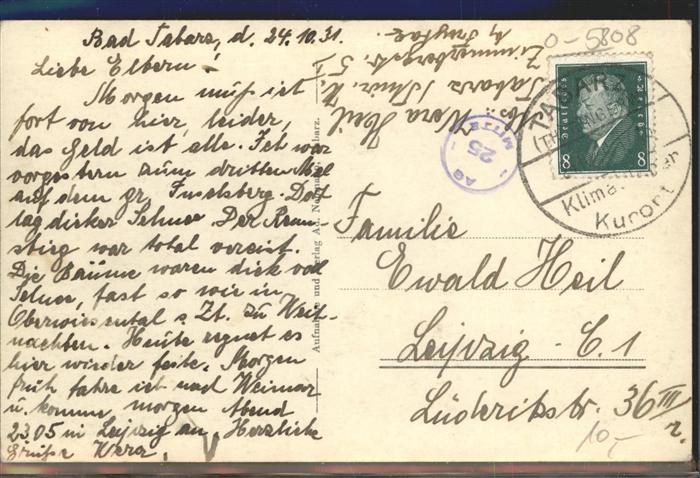 Bad Tabarz, d. 24.10.31.
Liebe Eltern!
Morgen muß ich
fort von hier, leider,
das Geld ist alle. Ich war
vorgestern zum dritten Mal
auf dem gr. Inselsberg. Dort
lag dicker Schnee. Der Renn-
stieg war total vereist.
Die Bäume waren dick voll
Schnee, fast so wie in
Oberwiesental s. Zt. zu Weih-
nachten. Heute regnet es
hier wieder feste. Morgen
früh fahre ich nach Weimar
u. komme morgen Abend
23.05 in Leipzig an. Herzliche
Grüsse Wera.
Abs.: Wera Heil
Tabarz Thür. W.
Zimmerbergstr. 5
Aufnahme und Verlag A. Tabarz.
0-5808
Deutsches Reich
8 8
TABARZ
Klima
Kurort
25
Familie
Ewald Heil
Leipzig - C.1
Lüderitzstr. 36 III
r.
10,-